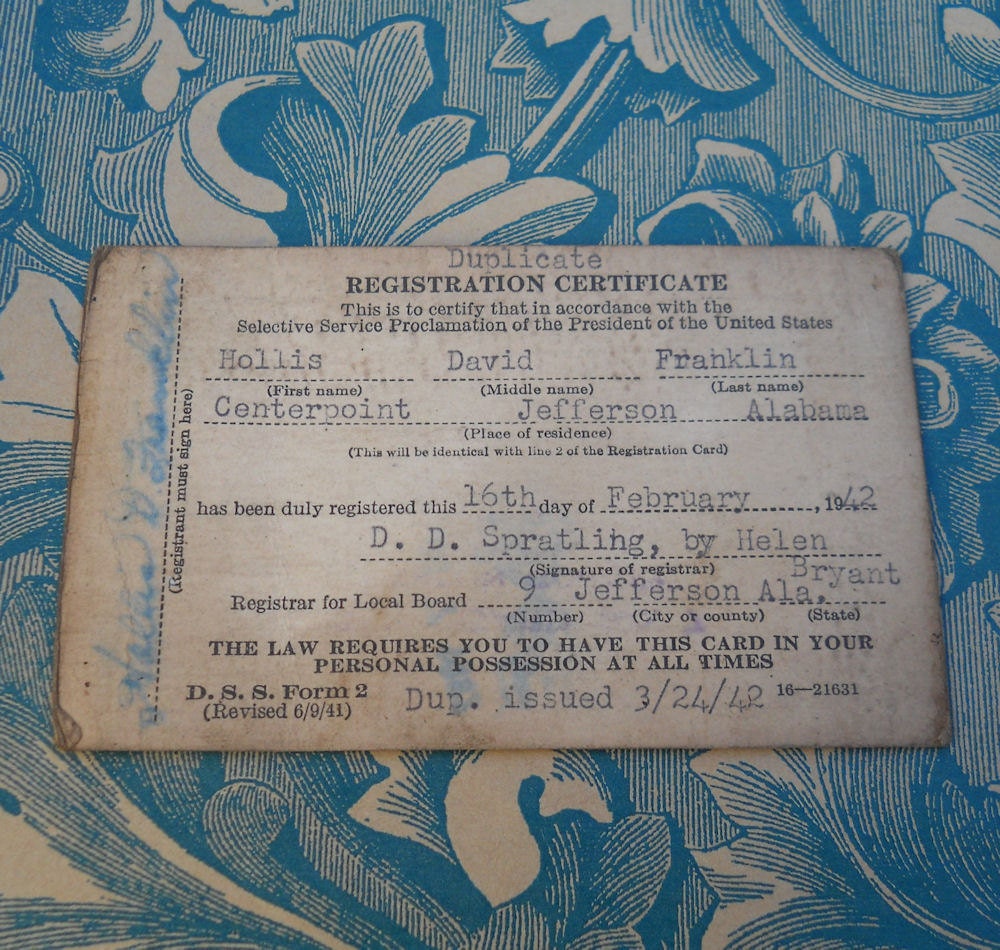 Duplicate
REGISTRATION CERTIFICATE
This is to certify that in accordance with the
Selective Service Proclamation of the President of the United States
Hollis David Franklin
(First name) (Middle name) (Last name)
Centerpoint Jefferson Alabama
(Place of residence)
(This will be identical with line 2 of the Registration Card)
has been duly registered this 16th day of February, 1942
D. D. Spratling, by Helen
(Signature of registrar) Bryant
Registrar for Local Board 9 Jefferson Ala.
(Number) (City or county) (State)
THE LAW REQUIRES YOU TO HAVE THIS CARD IN YOUR
PERSONAL POSSESSION AT ALL TIMES
D. S. S. Form 2
(Revised 6/9/41)
Dup. issued 3/24/42 16—21631
(Registrant must sign here)
D Franklin